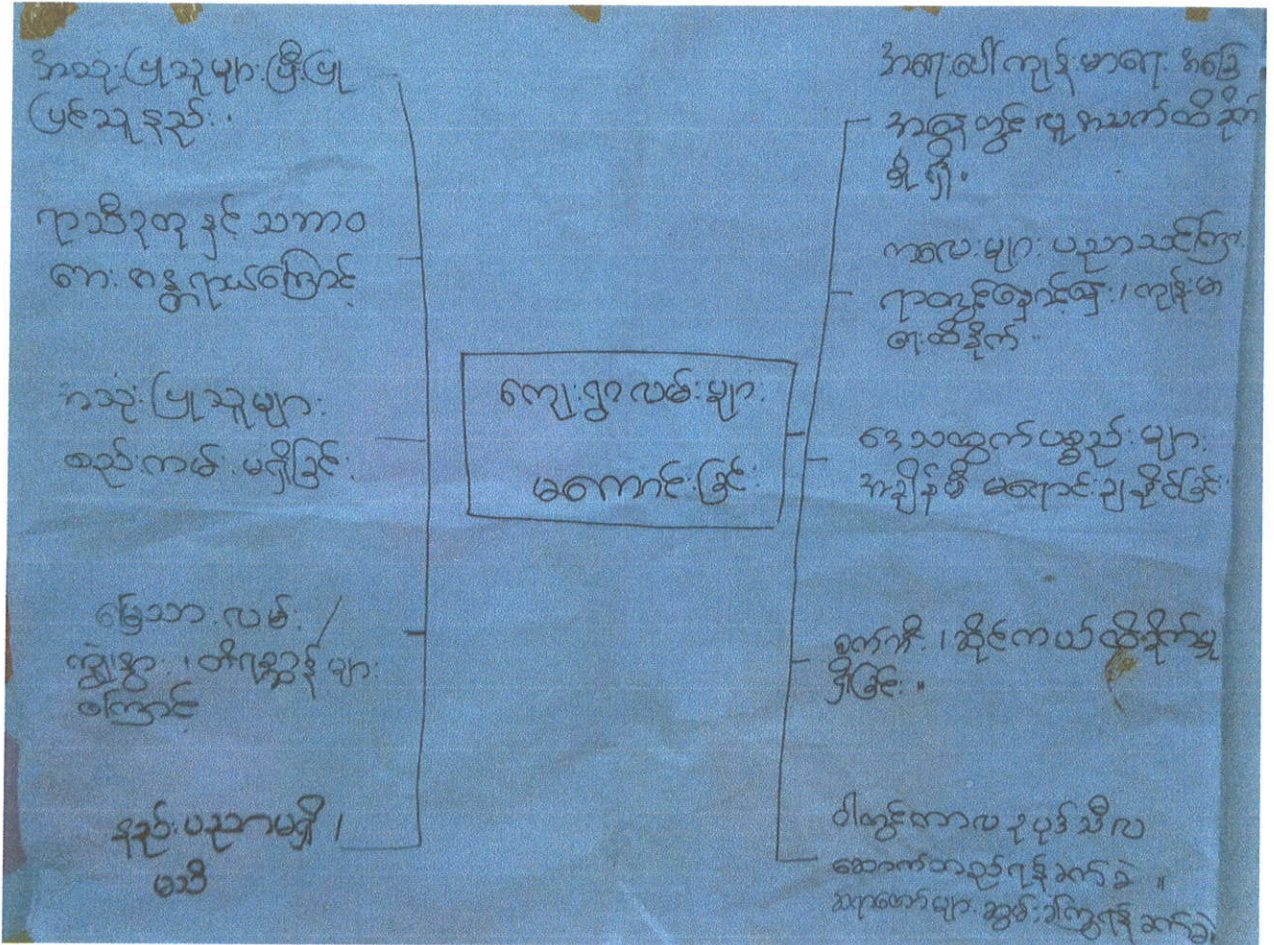 အသုံးပြုသူများပြီးပြု
ပြင်သူနည်း။
ရာသီဥတုနှင့် သဘာဝ
ဘေးအန္တရာယ်ကြောင့်
အသုံးပြုသူများ
စည်းကမ်းမရှိခြင်း
မြေသားလမ်း
ကျွဲ၊နွား၊တိရစ္ဆာန်များ
ကြောင့်
နည်းပညာမရှိ၊
မသိ
ကျေးရွာလမ်းများ
မကောင်းခြင်း
အရေးပေါ်ကျန်းမာရေးအခြေ
အနေတွင် လူ့အသက်ထိခိုက်
မှုရှိ။
ကလေးများပညာသင်ကြား
ရာတွင်နှောင့်နှေး၊ကျန်းမာ
ရေးထိခိုက်
ဒေသထွက်ပစ္စည်းများ
အချိန်မီ မရောင်းချနိုင်ခြင်း
စက်ဘီး၊ဆိုင်ကယ်ထိခိုက်မှု
ရှိခြင်း။
ဝါတွင်းကာလဥပုဒ်သီလ
ဆောက်တည်ရန်ခက်ခဲ။
ဆရာတော်များဆွမ်းခံကြွရန်ခက်ခဲ